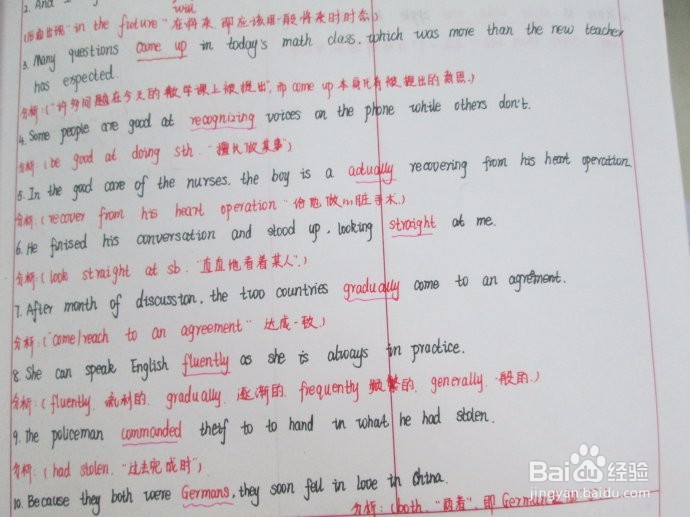 2. And I
will
(后面出现 "in the future" 在将来, 即应该用一般将来时时态)
3. Many questions came up in today's math class, which was more than the new teacher
has expected.
分析: ("许多问题在今天的数学课上被提出", 而 come up 本身就有被提出的意思.)
4. Some people are good at recognizing voices on the phone while others don't.
分析: (be good at doing sth. "擅长做某事")
5. In the good care of the nurses, the boy is a actually recovering from his heart operation
分析: (recover from his heart operation "给他做心脏手术.)
6. He finised his conversation and stood up, looking straight at me.
分析: (look straight at sb. "直直地看着某人".)
7. After month of discusston, the two countries gradually come to an agreement.
分析: ("come/reach to an agreement" 达成一致)
8. She can speak English fluently as she is always in practice.
分析: (fluently, 流利的, gradually, 逐渐的, frequently 频繁的, generally, 一般的.)
9. The policeman commanded theif to to hand in what he had stolen.
分析: (had stolen, "过去完成时")
10. Because they both were Germans, they soon fell in love in China.
分析: (both, "两者", 即 Germans
Baidu 经验
jingyan.baidu.com